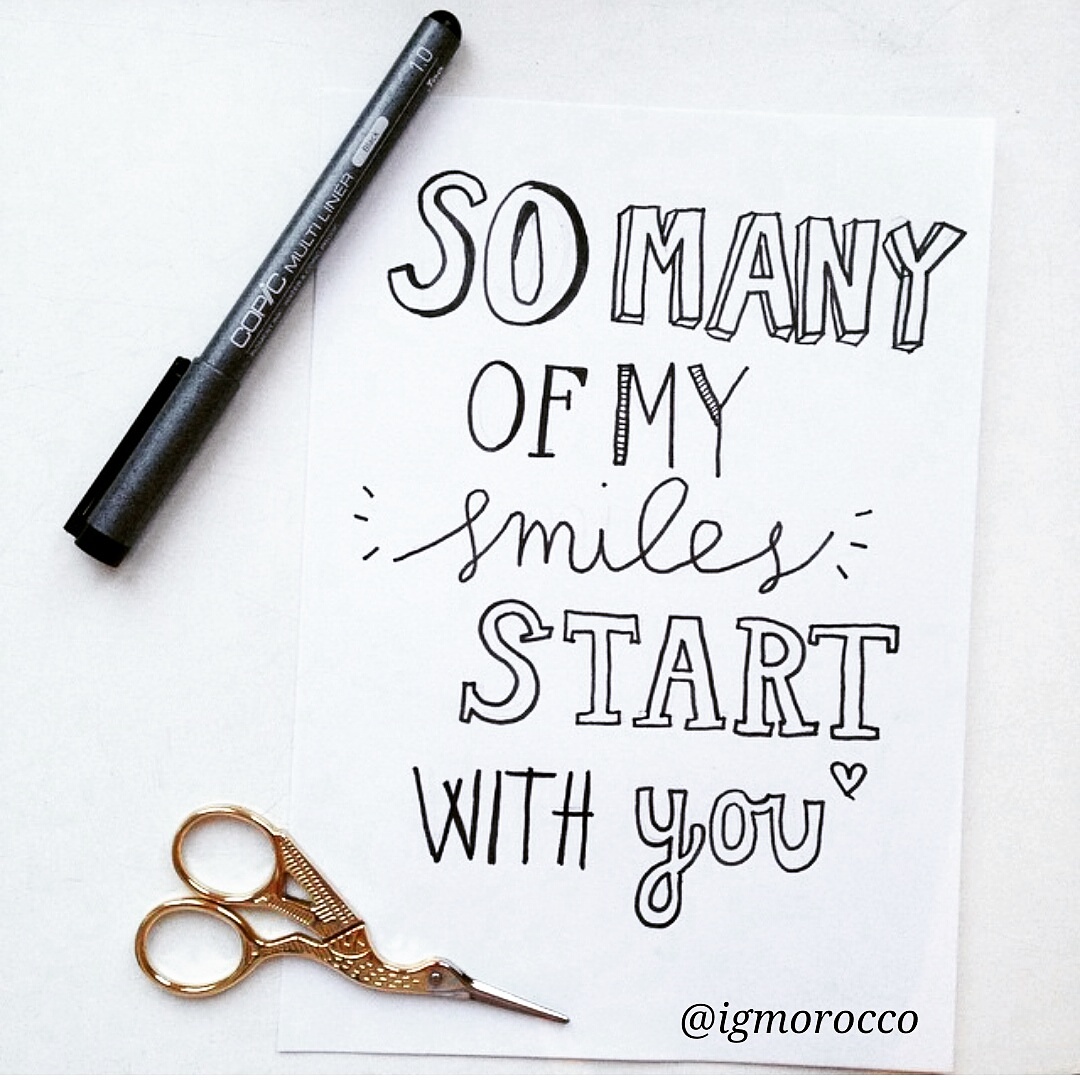 1.0
Black
COPIC MULTI LINER
SO MANY
OF MY
smiles
START
WITH you
@igmorocco